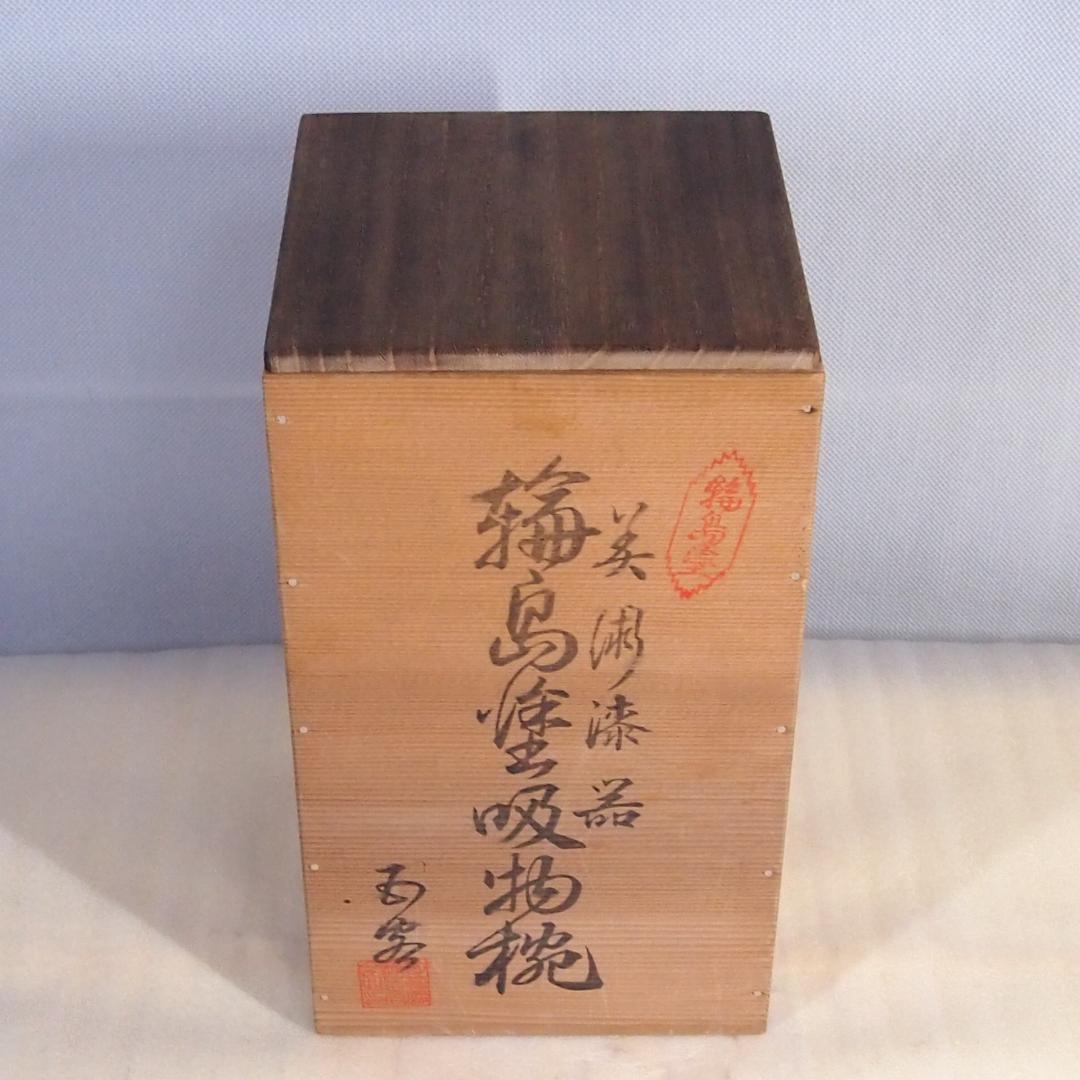 輪島塗
美術漆器
輪島塗吸物椀
五客